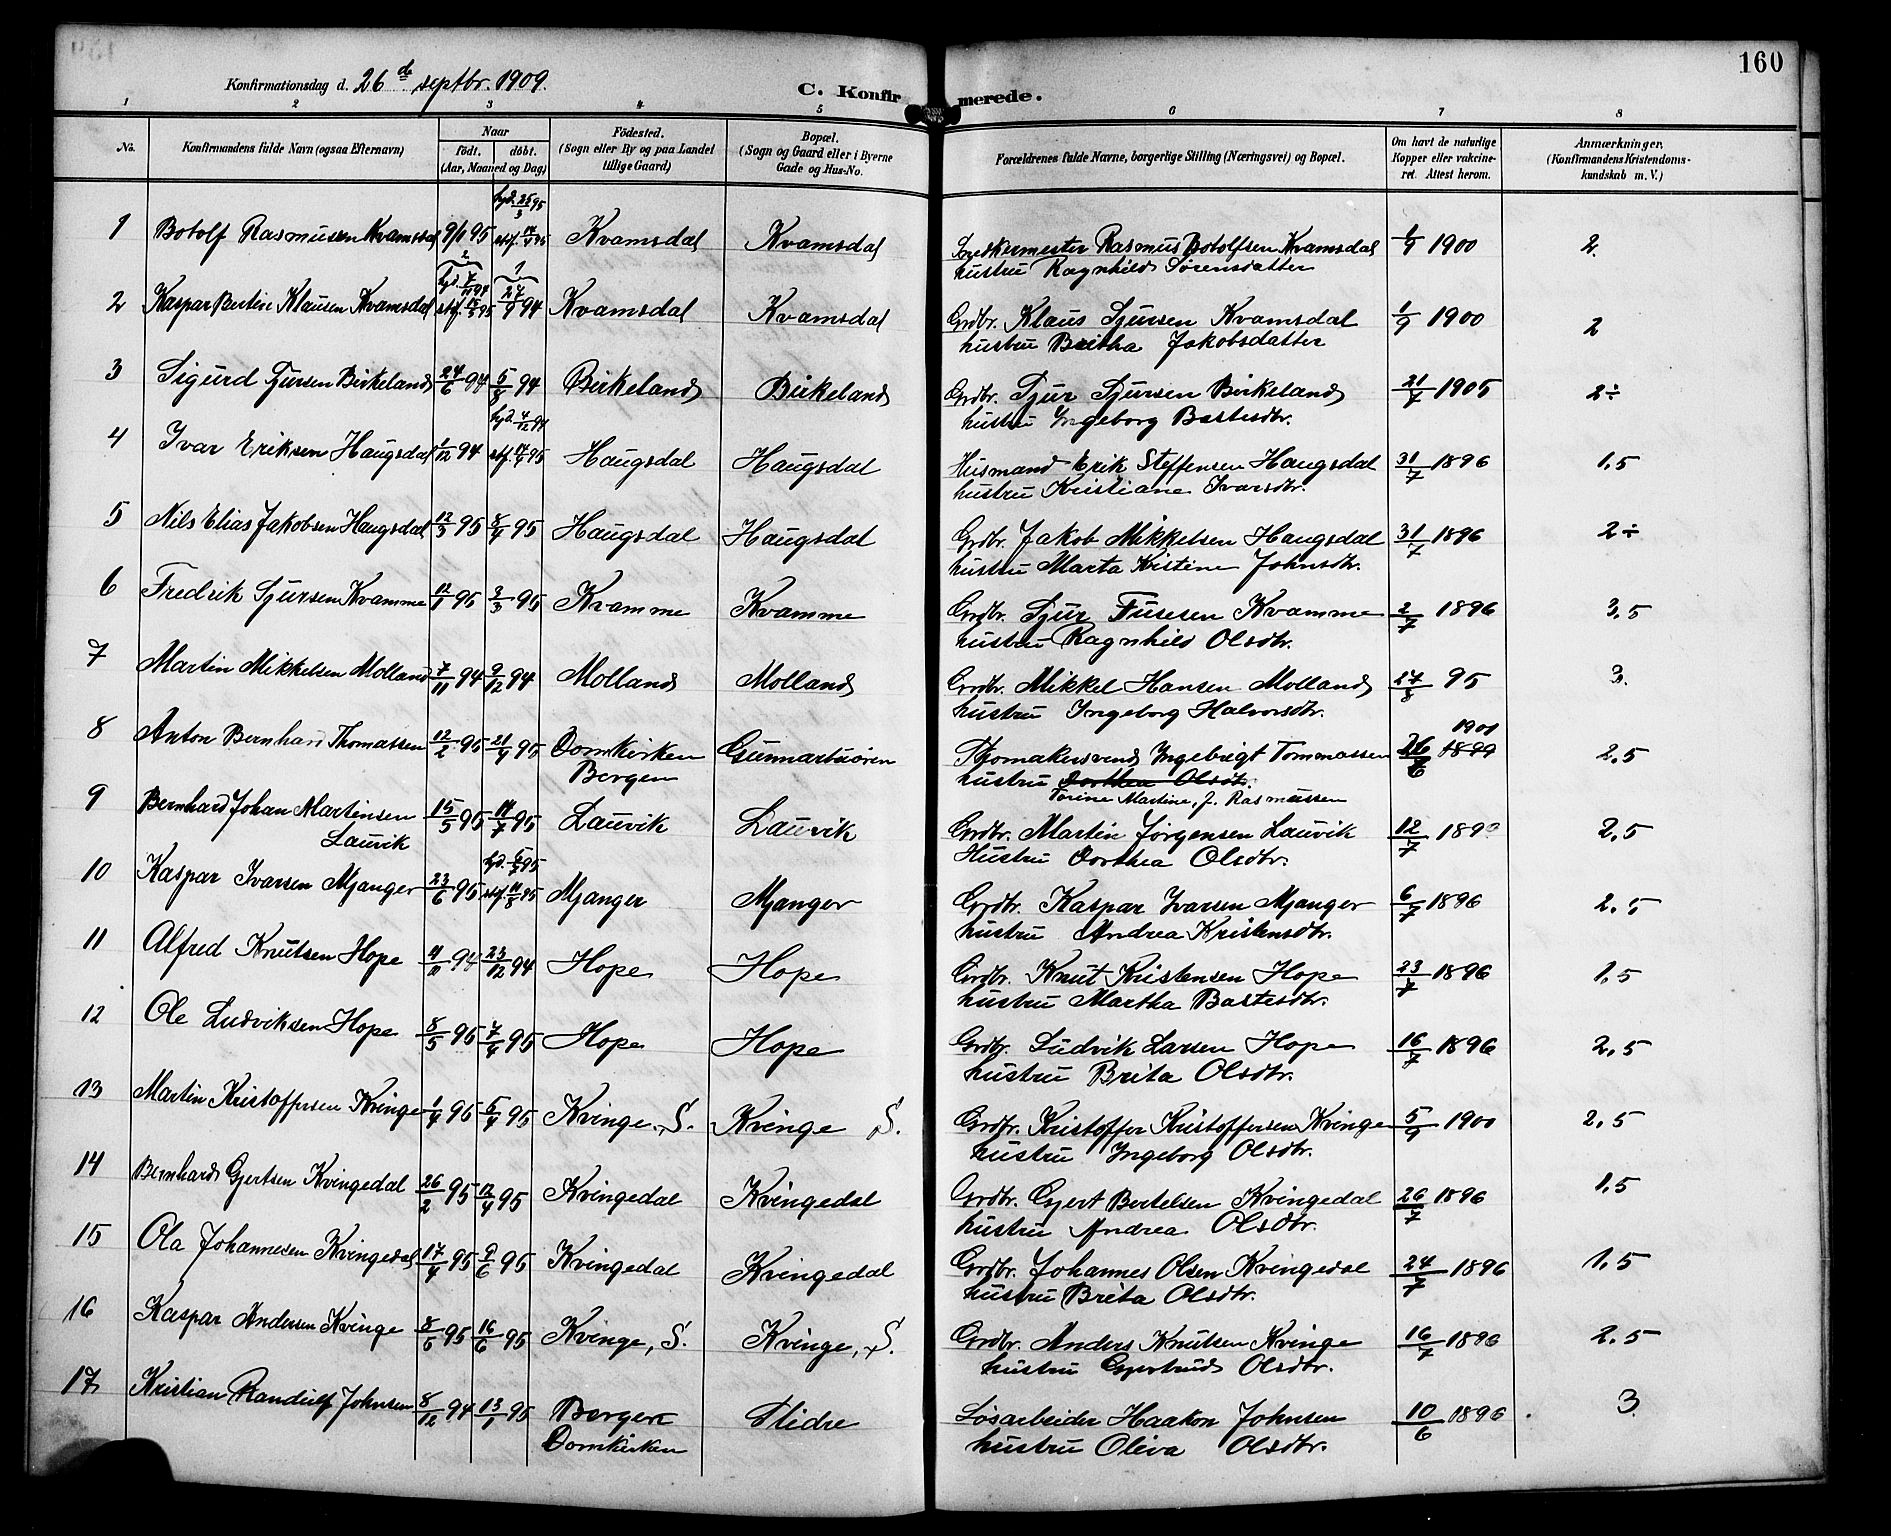 160
Konfirmationsdag d. 26de septbr. 1909.
C. Konfirmerede.
1 2 3 4 5 6 7 8
No.
Konfirmandens fulde Navn (ogsaa Efternavn)
Naar
födt. döbt.
(Aar, Maaned og Dag)
Födested.
(Sogn eller By og paa Landet
tillige Gaard)
Bopæl.
(Sogn og Gaard eller i Byerne
Gade og Hus-No.
Forældrenes fulde Navne, borgerlige Stilling (Næringsvei) og Bopæl.
Om havt de naturlige
Kopper eller vakcine-
ret. Attest herom.
Anmærkninger.
(Konfirmandens Kristendoms-
kundskab m. V.)
hjd. 25/3 95
1 Botolf Rasmussen Kvamsdal 9/1 95 stf. 14/4 95 Kvamsdal Kvamsdal Rasmus Botolfsen Kvamsdal 1/9 1900 2.
hustru Ragnhild Sørensdatter
2 Kaspar Bertin Klausen Kvamsdal 27/9 94 Kvamsdal Kvamsdal Grdbr. Klaus Sjursen Kvamsdal 1/9 1900 2
hustru Britha Jakobsdatter
3 Sigurd Sjursen Birkeland 24/6 94 5/8 94 Birkeland Birkeland Grdbr. Sjur Sjursen Birkeland 21/7 1905 2÷
hustru Ingeborg Bastesdtr.
hjd. 4/12 94
4 Ivar Eriksen Haugsdal 1/12 94 stf. 14/4 95 Haugsdal Haugsdal Husmand Erik Steffensen Haugsdal 31/7 1896 1.5
hustru Kristiane Ivarsdtr.
5 Nils Elias Jakobsen Haugsdal 12/3 95 8/4 95 Haugsdal Haugsdal Grdbr. Jakob Mikkelsen Haugsdal 31/7 1896 2÷
hustru Marta Kistine Johnsdtr.
6 Fredrik Sjursen Kvamme 12/1 95 3/3 95 Kvamme Kvamme Grdbr. Sjur Fusesen Kvamme 2/7 1896 3.5
hustru Ragnhild Olsdtr.
7 Martin Mikkelsen Molland 7/11 94 9/12 94 Molland Molland Grdbr. Mikkel Hansen Molland 95 3.
hustru Ingeborg Halvorsdtr.
1901
8 Anton Bernhard Thomassen 12/2 95 21/4 95 Domkirken Ingebrigt Tommassen 26/6 1899 2.5
Bergen hustru Dorthea Olsdtr.
Torine Martine, f. Rasmussen
9 Bernhard Johan Martinsen 15/5 95 14/7 95 Lauvik Lauvik Grdbr. Martin Jørgensen Lauvik 12/7 2.5
Lauvik Hustru Dorthea Olsdtr.
10 Kaspar Ivarsen Mjanger 23/6 95 stf. 11/8 95 Mjanger Mjanger Grdbr. Kaspar Ivarsen Mjanger 6/7 1896 2.5
hustru Andrea Kristensdtr.
11 Alfred Knutsen Hope 11/11 94 23/12 94 Hope Hope Grdbr. Knut Kristensen Hope 23/7 1896 1.5
hustru Martha Bastesdtr.
12 Ole Ludviksen Hope 8/5 95 7/4 95 Hope Hope Grdbr. Ludvik Larsen Hope 16/7 1896 2.5
hustru Brita Olsdtr.
13 Martin Kristoffersen Kvinge 1/4 95 5/4 95 Kvinge, S. Kvinge S. Grdbr. Kristoffer Kristoffersen Kvinge 5/9 1900 2.5
hustru Ingeborg Olsdtr.
14 Bernhard Gjertsen Kvingedal 26/2 95 12/4 95 Kvingedal Kvingedal Grdbr. Gjert Bertelsen Kvingedal 26/7 1896 1.5
hustru Andrea Olsdtr.
15 Ola Johannesen Kvingedal 17/4 95 9/6 95 Kvingedal Kvingedal Grdbr. Johannes Olsen Kvingedal 24/7 1896 1.5
hustru Brita Olsdtr.
16 Kaspar Andersen Kvinge 8/5 95 16/6 95 Kvinge, S. Kvinge, S. Grdbr. Anders Knutsen Kvinge 16/7 1896 2.5
hustru Gjertrud Olsdtr.
17 Kristian Randulf Johnsen 8/12 94 13/1 95 Bergen Slidre Løsarbeider Haakon Johnsen 10/6 1896 3
Domkirken hustru Oliva Olsdtr.